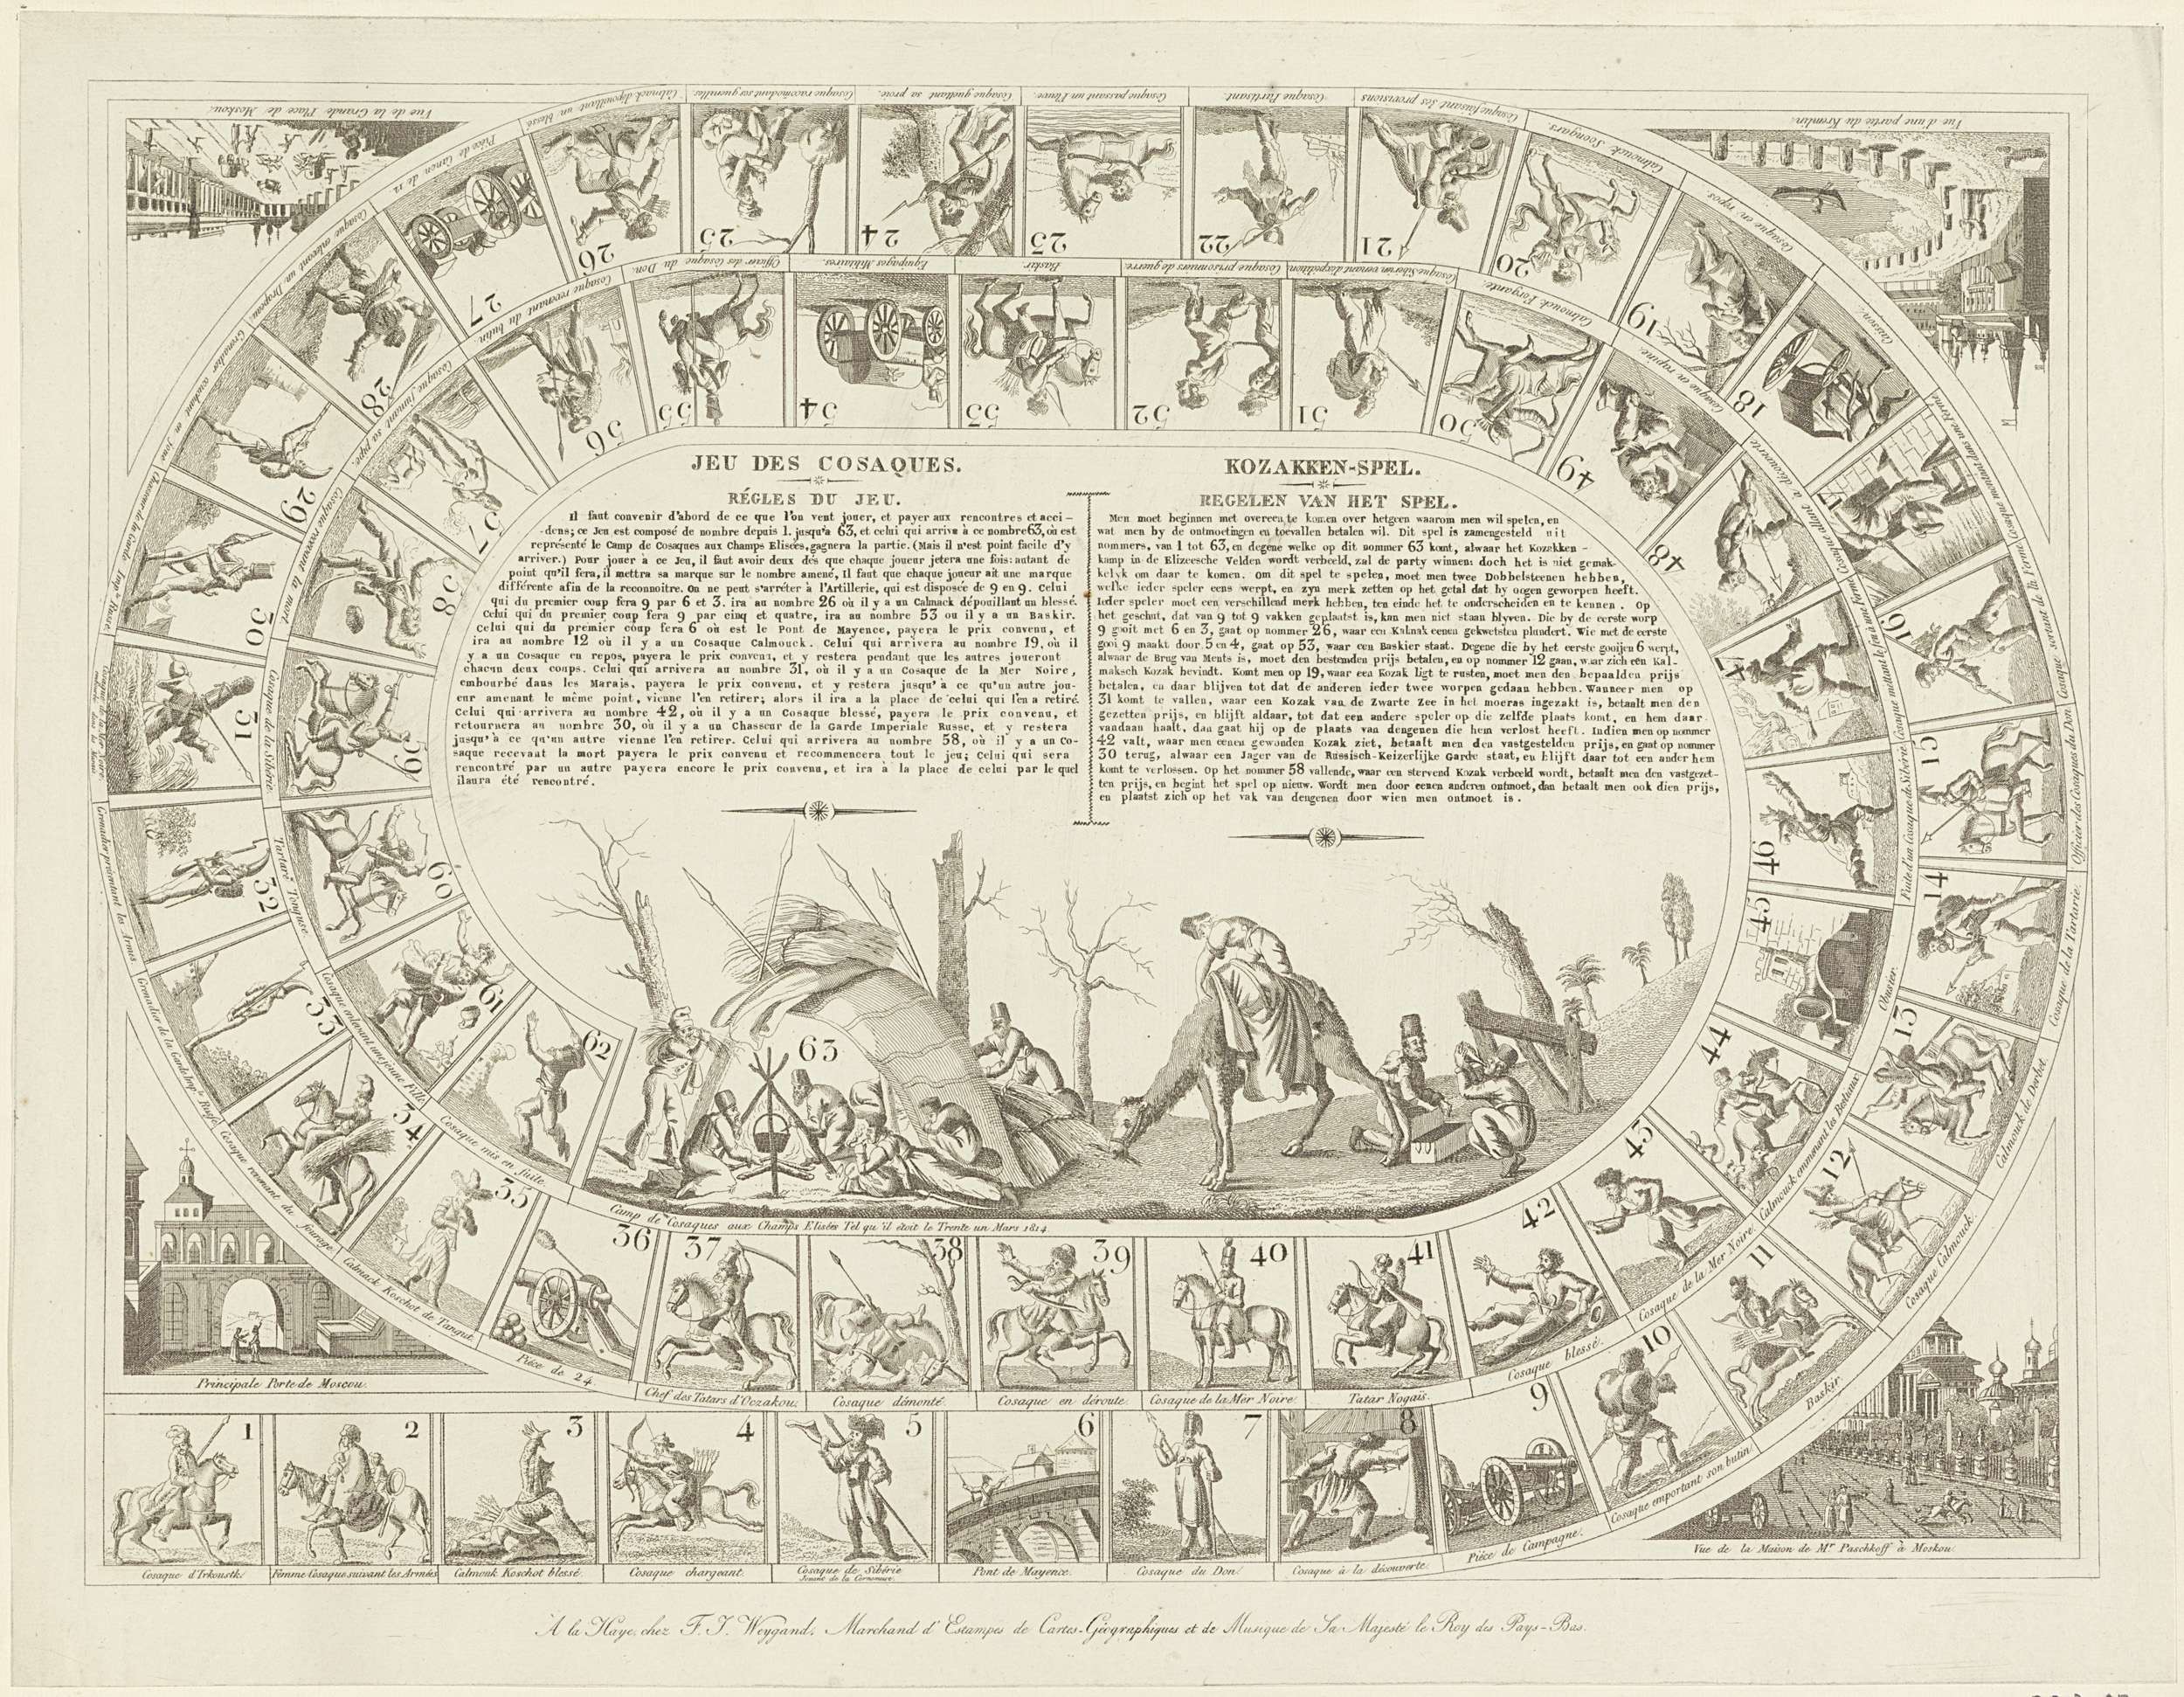 JEU DES COSAQUES.
RÉGLES DU JEU.
Il faut convenir d'abord de ce que l'on veut jouer, et payer aux rencontres et acci-
dens; ce Jeu est composé de nombre depuis 1. jusqu'à 63, et celui qui arriva à ce nombre 63, où est
représenté le Camp de Cosaques aux Champs Elisées, gagnera la partie. (Mais il n'est point facile d'y
arriver.) Pour jouer à ce Jeu, il faut avoir deux dés que chaque joueur jetera une fois: autant de
point qu'il fera, il mettra sa marque sur le nombre amené, Il faut que chaque joueur ait une marque
différente afin de la reconnoitre. On ne peut s'arréter à l'Artillerie, qui est disposée de 9 en 9. Celui
qui du premier coup fera 9 par 6 et 3. ira au nombre 26 où il y a un Calmack dépouillant un blessé.
Celui qui du premier coup fera 9 par cinq et quatre, ira au nombre 53 ou il y a un Baskir.
Celui qui du premier coup fera 6 où est le Pont de Mayence, payera le prix convenu, et
ira au nombre 12 où il y a un Cosaque Calmouck. Celui qui arrivera au nombre 19, où il
y a un Cosaque en repos, payera le prix convenu, et y restera pendant que les autres joueront
chacun deux coups. Celui qui arrivera au nombre 31, où il y a un Cosaque de la Mer Noire,
embourbé dans les Marais, payera le prix convenu, et y restera jusqu'à ce qu'un autre jou-
eur amenant le même point, vienne l'en retirer; alors il ira à la place de celui qui l'en a retiré.
Celui qui arrivera au nombre 42, où il y a un Cosaque blessé, payera le prix convenu, et
retournera au nombre 30, où il y a un Chasseur de la Garde Imperiale Russe, et y restera
jusqu'à ce qu'un autre vienne l'en retirer. Celui qui arrivera au nombre 58, où il y a un Co-
saque recevant la mort payera le prix convenu et recommencera tout le jeu; Celui qui sera
rencontré par un autre payera encore le prix convenu, et ira à la place de celui par le quel
il aura été rencontré.
KOZAKKEN-SPEL.
REGELEN VAN HET SPEL.
Men moet beginnen met overeen te komen over hetgeen waarom men wil spelen, en
wat men by de ontmoetingen en toevallen betalen wil. Dit spel is zamengesteld uit
nommers, van 1 tot 63, en degene welke op dit nommer 63 komt, alwaar het Kozakken-
kamp in de Elizeesche Velden wordt verbeeld, zal de party winnen: doch het is niet gemak-
kelyk om daar te komen. Om dit spel te spelen, moet men twee Dobbelsteenen hebben,
welke ieder speler eens werpt, en zyn merk zetten op het getal dat hy oogen geworpen heeft.
Ieder speler moet een verschillend merk hebben, ten einde het te onderscheiden en te kennen. Op
het geschut, dat van 9 tot 9 vakken geplaatst is, kan men niet staan blyven. Die by de eerste worp
9 gooit met 6 en 3, gaat op nommer 26, waar een Kalmak eenen gekwetsten plundert. Wie met de eerste
gooi 9 maakt door 5 en 4, gaat op 53, waar een Baskier staat. Degene die by het eerste gooijen 6 werpt,
alwaar de Brug van Ments is, moet den bestemden prijs betalen, en op nommer 12 gaan, waar zich een Kal-
maksch Kozak bevindt. Komt men op 19, waar een Kozak ligt te rusten, moet men den bepaalden prijs
betalen, en daar blijven tot dat de anderen ieder twee worpen gedaan hebben. Wanneer men op
31 komt te vallen, waar een Kozak van de Zwarte Zee in het moeras ingezakt is, betaalt men den
gezetten prijs, en blijft aldaar, tot dat een andere speler op die zelfde plaats komt, en hem daar
vandaan haalt, dan gaat hij op de plaats van dengenen die hem verlost heeft. Indien men op nommer
42 valt, waar men eenen gewonden Kozak ziet, betaalt men den vastgestelden prijs, en gaat op nommer
30 terug, alwaar een Jager van de Russisch-Keizerlijke Garde staat, en blijft daar tot een ander hem
komt te verlossen. Op het nommer 58 vallende, waar een stervend Kozak verbeeld wordt, betaalt men den vastgezet-
ten prijs, en begint het spel op nieuw. Wordt men door eenen anderen ontmoet, dan betaalt men ook dien prijs,
en plaatst zich op het vak van dengenen door wien men ontmoet is.
1 Cosaque d'Irkoustk.
2 Femme Cosaque suivant les Armées
3 Calmouk Koschot blessé.
4 Cosaque chargeant.
5 Cosaque de Sibérie
Jouant de la Cornemuse.
6 Pont de Mayence.
7 Cosaque du Don.
8 Cosaque à la découverte.
9 Pièce de Campagne.
10 Cosaque emportant son butin.
11 Baskir
12 Cosaque Calmouck.
13 Calmouck de Derbet.
14 Cosaque de la Tartarie.
15 Officier des Cosaques du Don
16 Cosaque sortant de la Ferme
17 Cosaque montant dans une Ferme
18 Caisson.
19 Cosaque en repos
20 Calmouck Soongars.
21 Cosaque faisant ses provisions
22 Cosaque Partisant.
23 Cosaque passant un Fleuve.
24 Cosaque guettant sa proie.
25 Cosaque racomodant ses guenilles.
26 Calmack dépouillant un blessé
27 Pièce de Canon de 12.
28 Cosaque enlevant un Drapeau
29 Grenadier combattant en
30 Chasseur de la Garde Imp.le Russe.
31 Cosaque de la Mer Noire
32 Grenadier présentant les Armes
33 Grenadier de la Garde Imp.le Russe
34 Cosaque revenant du fourage.
35 Calmack Koschot de Tangut.
36 Pièce de 24.
37 Chef des Tatars d'Oczakou.
38 Cosaque démonté.
39 Cosaque en déroute.
40 Cosaque de la Mèr Noire.
41 Tatar Nogais.
42 Cosaque blessé.
43 Cosaque de la Mer Noire.
44 Calmouck emmenant les Bateaux
45 Obusier.
46 Fuite d'un Cosaque de Sibérie
47 Cosaque mettant le feu à une ferme
48 Cosaque allant à découverte
49 Cosaque en rapine.
50 Calmouck Forgante.
51 Cosaque Sibérien venant d'expédition.
52 Cosaque prisonniers de guerre.
53 Baskir
54 Equipages Militaires.
55 Officier des Cosaque du Don.
56 Cosaque revenant du butin.
57 Cosaque fumant sa pipe.
58 Cosaque recevant la mort
59 Cosaque de la Sibérie.
60 Tartare Tonguse.
61 Cosaque enlevant une jeune Fille.
62 Cosaque mis en fuite.
63
Camp de Cosaques aux Champs Elisées Tel qu'il étoit le Trente un Mars 1814
Vue de la Grande Place de Moskou.
Vue d'une partie du Kremlin.
Principale Porte de Moscou.
Vue de la Maison de Mr. Paschkoff à Moskou.
A la Haye, chez F. J. Weygand, Marchand d'Estampes de Cartes-Géographiques et de Musique de Sa Majesté le Roy des Pays-Bas.